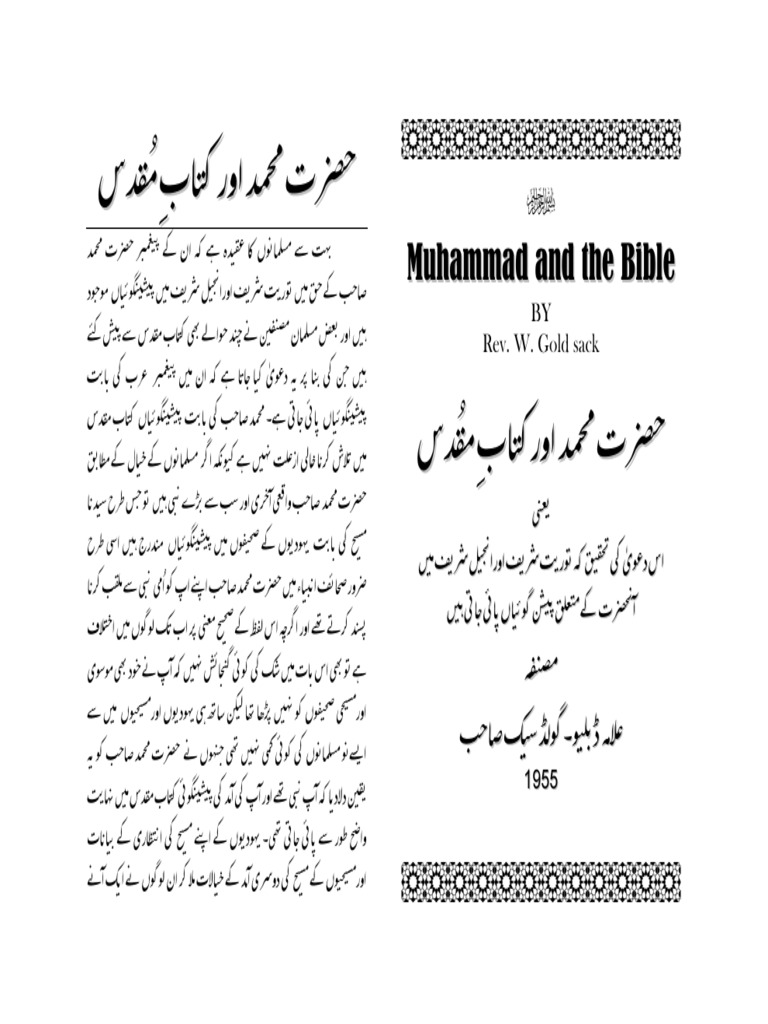 ﷽
Muhammad and the Bible
BY
Rev. W. Gold sack
حضرت محمد اور کتابِ مُقدس
یعنی
اس دعویٰ کی تحقیق کہ توریت شریف اور انجیل شریف میں
آنحضرت کے متعلق پیشن گوئیاں پائی جاتی ہیں
مصنفہ
علامہ ڈبلیو۔ گولڈ سیک صاحب
1955
حضرت محمد اور کتابِ مُقدس
بہت سے مسلمانوں کا عقیدہ ہے کہ ان کے پیغمبر حضرت محمد
صاحب کے حق میں توریت شریف اور انجیل شریف میں پیشینگوئیاں موجود
ہیں اور بعض مسلمان مصنفین نے چند حوالے بھی کتاب مقدس سے پیش کئے
ہیں جن کی بنا پر یہ دعویٰ کیا جاتا ہے کہ ان میں پیغمبر عرب کی بابت
پیشینگوئیاں پائی جاتی ہے۔ محمد صاحب کی بابت پیشینگوئیاں کتاب مقدس
میں تلاش کرنا خالی از علت نہیں ہے کیونکہ اگر مسلمانوں کے خیال کے مطابق
حضرت محمد صاحب واقعی آخری اور سب سے بڑے نبی ہیں تو جس طرح سیدنا
مسیح کی بابت یہودیوں کے صحیفوں میں پیشینگوئیاں مندرج ہیں اسی طرح
ضرور صحائف انبیاء میں حضرت محمد صاحب اپنے اپ کو اُمی نبی سے ملقب کرنا
پسند کرتے تھے اور اگرچہ اس لفظ کے صحیح معنی پر اب تک لوگوں میں اختلاف
ہے تو بھی اس بات میں شک کی کوئی گنجائش نہیں کہ آپ نے خود بھی موسوی
اور مسیحی صحیفوں کو نہیں پڑھا تھا لیکن ساتھ ہی یہودیوں اور مسیحیوں میں سے
ایسے نو مسلمانوں کی کوئی کمی نہیں تھی جنہوں نے حضرت محمد صاحب کو یہ
یقین دلادیا کہ آپ نبی تھے اور آپ کی آمد کی پیشینگوئی کتاب مقدس میں نہایت
واضح طور سے پائی جاتی تھی۔ یہودیوں کے اپنے مسیح کی انتظاری کے بیانات
اور مسیحیوں کے مسیح کی دوسری آمد کے خیالات ملا کر ان لوگوں نے ایک آنے